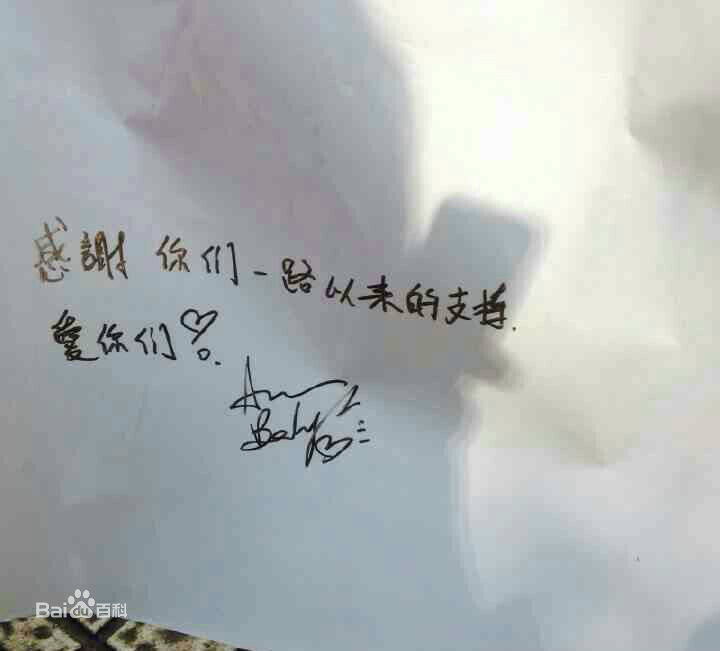 感謝你们一路以来的支持.
愛你们♡。
Baby
Bai du 百科